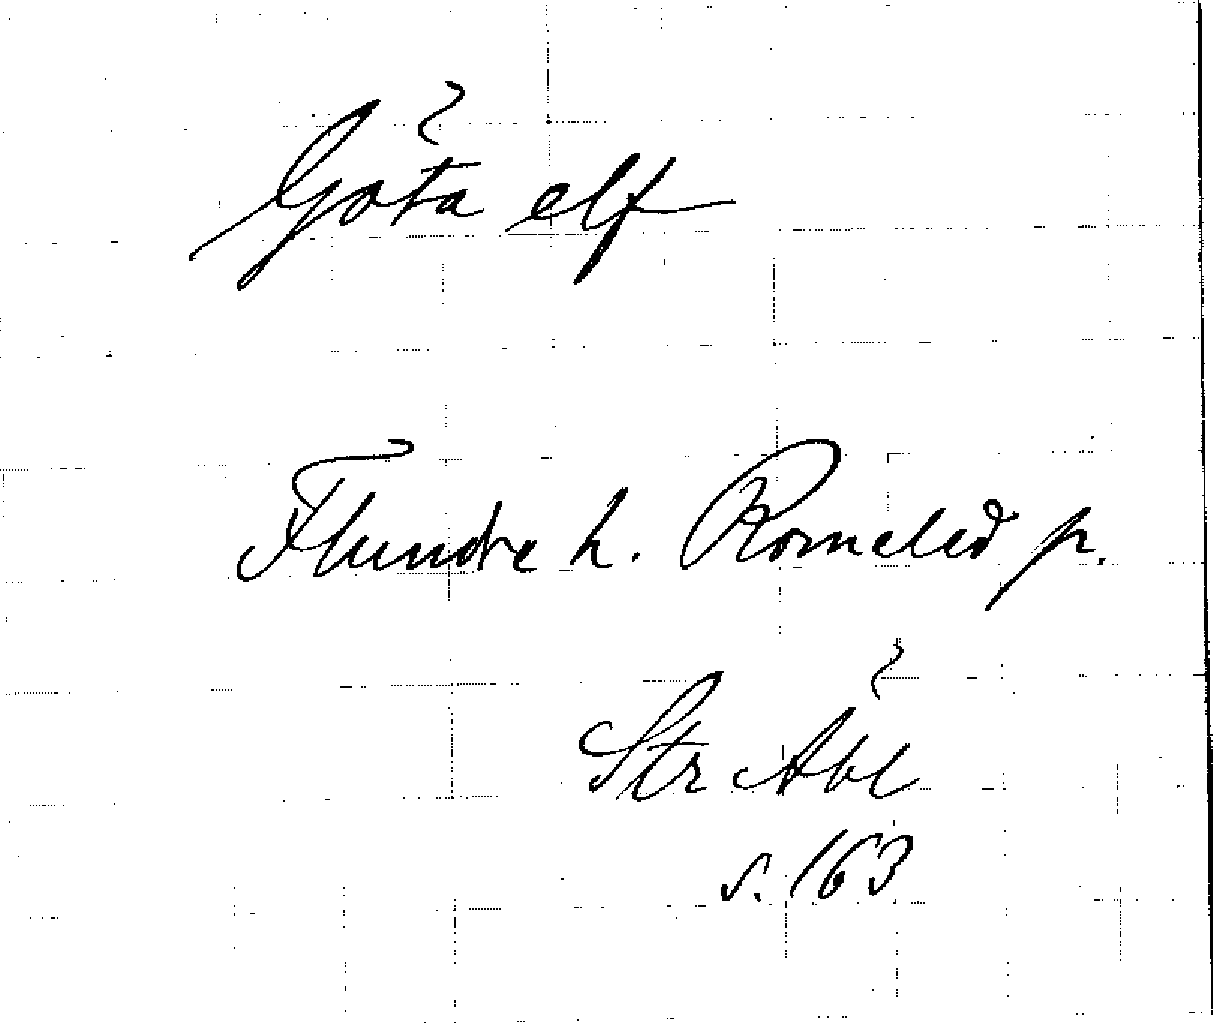 Göta elf
Flundre h. Romeled p.
Str Abl
s. 163